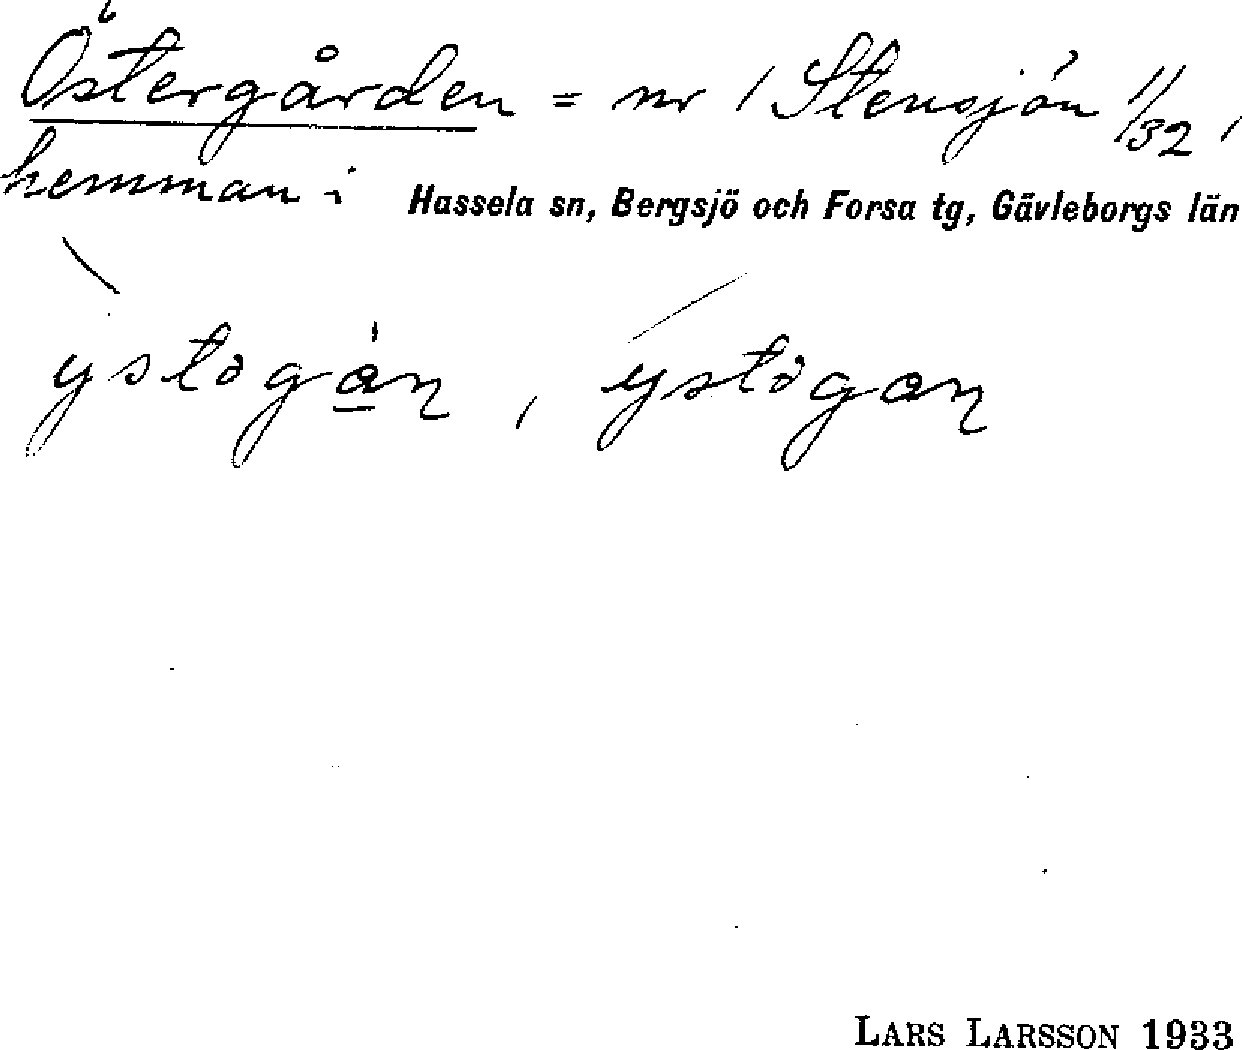 Östergården = nr 1 Stensjön 11/32,
hemman i Hassela sn, Bergsjö och Forsa tg, Gävleborgs län
LARS LARSSON 1933